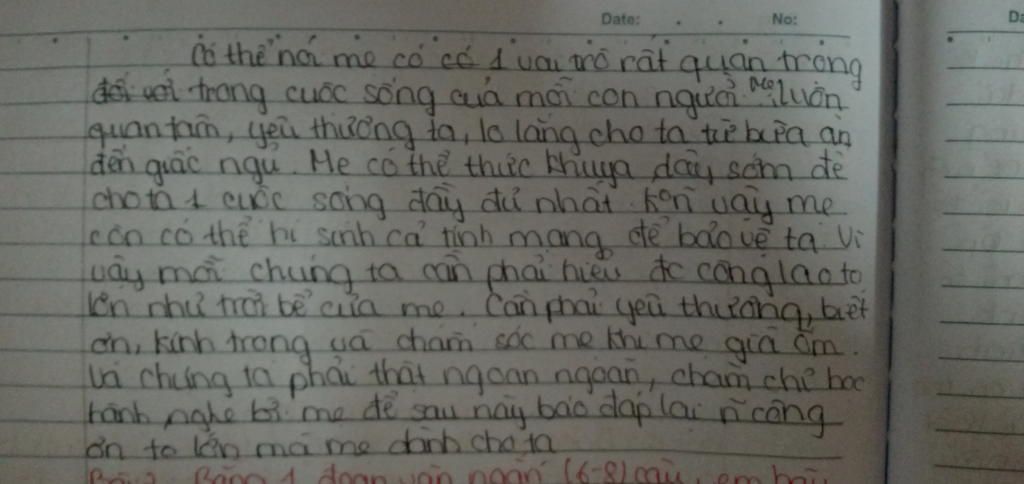 Date: . . No: Da
Có thể nói mẹ có có 1 vai trò rất quan trọng
đối với trong cuộc sống của mỗi con người Mẹ luôn
quan tâm, yêu thương ta, lo lắng cho ta từ bữa ăn
đến giấc ngủ. Mẹ có thể thức khuya dậy sớm để
cho ta 1 cuộc sống đầy đủ nhất. Hơn vậy mẹ
còn có thể hi sinh cả tính mạng để bảo vệ ta. Vì
vậy mỗi chúng ta cần phải hiểu đc công lao to
lớn như trời bể của mẹ. Cần phải yêu thương, biết
ơn, kính trọng và chăm sóc mẹ khi mẹ già ốm.
Và chúng ta phải thật ngoan ngoãn, chăm chỉ học
hành nghe lời mẹ để sau này báo đáp lại n~ công
ơn to lớn mà mẹ dành cho ta
1 đoạn văn ngắn (6-8) câu, em hãy